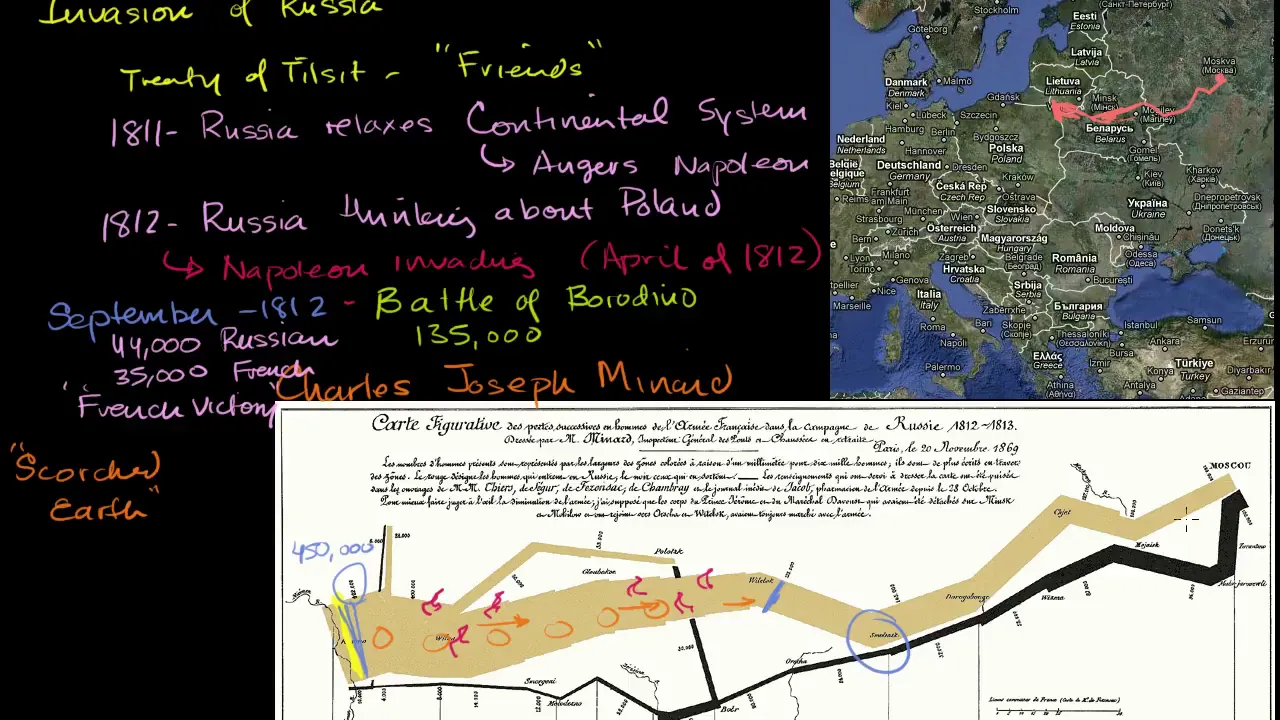 Invasion of Russia
Treaty of Tilsit - "Friends"
1811- Russia relaxes Continental System
↳ Angers Napoleon
1812- Russia thinking about Poland
↳ Napoleon invading (April of 1812)
September -1812 - Battle of Borodino
44,000 Russian
135,000
35,000 French
"French Victory"
Charles Joseph Minard
"Scorched
Earth"
450,000
Carte Figurative des pertes successives en hommes de l'Armée Française dans la campagne de Russie 1812-1813.
Dressée par M. Minard, Inspecteur Général des Ponts et Chaussées en retraite
Paris, le 20 Novembre 1869
Les nombres d'hommes présents sont représentés par les largeurs des zônes colorées à raison d'un millimètre pour dix mille hommes; ils sont de plus écrits en travers
des zônes. Le rouge désigne les hommes qui entrent en Russie, le noir ceux qui en sortent. Les renseignements qui ont servi à dresser la carte ont été puisés
dans les ouvrages de M.M. Thiers, de Ségur, de Fezensac, de Chambray et le journal inédit de Jacob, pharmacien de l'Armée depuis le 28 Octobre.
Pour mieux faire juger à l'œil la diminution de l'armée, j'ai supposé que les corps du Prince Jérôme et du Maréchal Davoust qui avaient été détachés sur Minsk
et Mohilow et ont rejoint vers Orscha et Witebsk, avaient toujours marché avec l'armée.
MOSCOU
Chjat
Mojaisk
Polotzk
Gloubokoe
Witebsk
Smolensk
Dorogobouge
Wixma
Malo-jaroswetz
Tarantino
Smorgoni
Molodezno
Orscha
Bobr
30.000
Stockholm
Göteborg
Eesti
Estonia
(Санкт-Петербург)
Latvija
Latvia
Moskva
(Москва)
Danmark
Denmark
Malmö
Lietuva
Lithuania
Kiel
Lübeck
Gdańsk
Szczecin
Minsk
(Мінск)
Hamburg
Berlin
Bydgoszcz
Беларусь
Belarus
Nederland
Netherlands
Hannover
Polska
Poland
Gomel
(Гомель)
België
Belgique
Belgium
Deutschland
Germany
Dresden
Kraków
Kiev
(Київ)
Kharkov
(Харків)
Reims
Frankfurt
am Main
Česká Rep
Czech Rep
Ostrava
Україна
Ukraine
Dnepropetrovsk
(Дніпропетровськ)
Strasbourg
München
Wien
Slovensko
Slovakia
Moldova
Chișinău
Donets'k
(Донецьк)
Bern
Zürich
Österreich
Austria
Magyarország
Hungary
Odessa
(Одеса)
Lyon
Milano
Torino
Zagreb
Belgrade
(Београд)
România
Romania
Hrvatska
Croatia
Genova
București
Marseille
Nice
Italia
Italy
Srbija
Serbia
България
Bulgaria
Roma
Rome
Bari
Istanbul
Samsun
Napoli
Bursa
Ankara
Erzurum
Ελλάς
Greece
Türkiye
Turkey
Palermo
Izmir
Konya
Diyarbakır
Athina
Antalya
Adana
Gaziantep